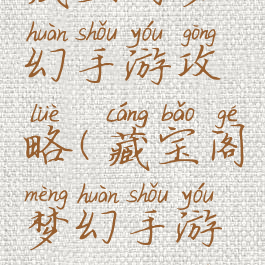 huàn shǒu yóu gōng
幻手游攻
lüè cáng bǎo gé
略(藏宝阁
mèng huàn shǒu yóu
梦幻手游